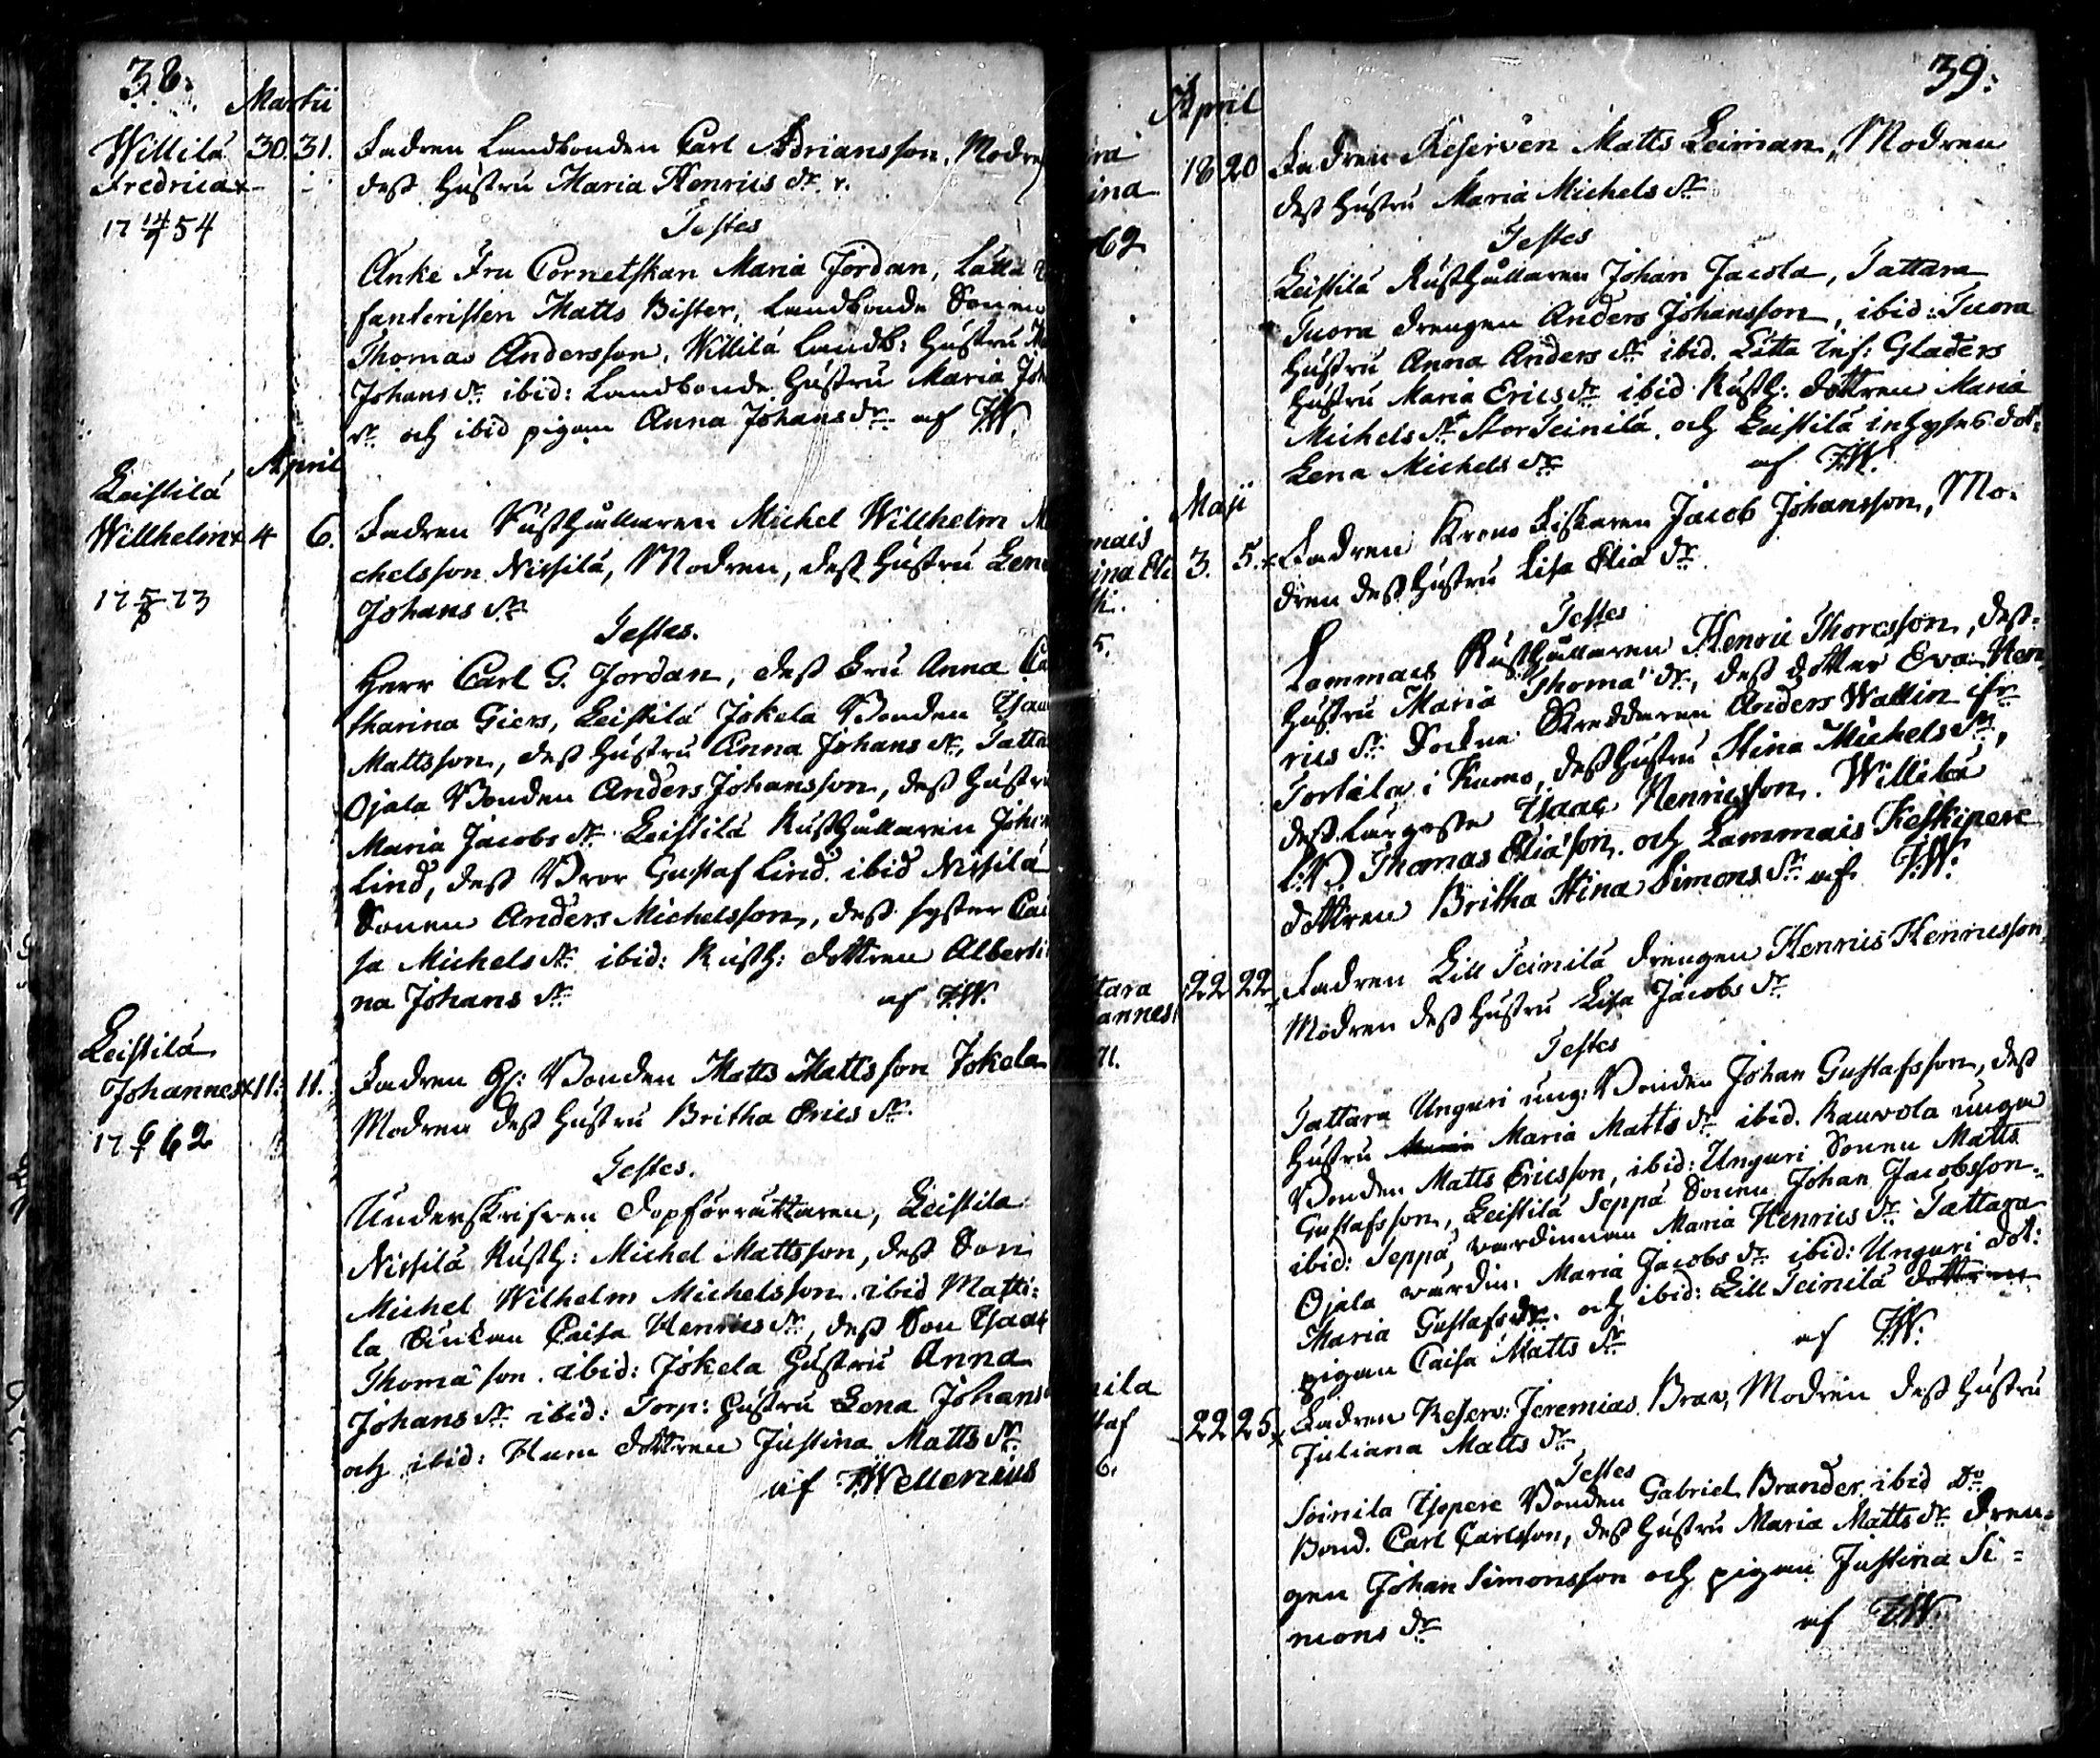 38.
Martii
Willilä 30. 31. Fadren Landbonden Carl Adriansson, Modren
Fredrica dess Hustru Maria Henrics dr.
17 14/9 54
Testes
Enke Fru Cornetskan Maria Jordan, Lätta
fanteristen Matts Bister, Landbonde Sonen
Thomas Andersson, Willilä Landb: Hustru
Johans dr ibid: Landbonde Hustru Maria Joh
dr och ibid pigan Anna Johans dr af FW.
April
Leistilä
Willhelm 4 6. Fadren Rusthållaren Michel Willhelm Mi
chelsson Nissilä, Modren, dess Hustru Lena
17 5/8 73
Johans dr
Testes.
Herr Carl G. Jordan, dess Fru Anna Ca
tharina Giers, Leistilä Jokela Bonden Isaac
Mattsson, dess Hustru Anna Johans dr, Tatta
Ojala Bonden Anders Johansson, dess Hustru
Maria Jacobs dr Leistilä Rusthållaren Johan
Lind, dess Bror Gustaf Lind. ibid Nissilä
Sonen Anders Michelsson, dess syster Cai
sa Michels dr ibid: Rusth: dottren Alberti
na Johans dr af FW.
Leistilä
Johannes 11. 11. Fadren Gl: Bonden Matts Mattsson Jokela
Modren dess Hustru Britha Erics dr.
17 9/9 62
Testes.
Underskrifven dopförrättaren, Leistilä
Nissilä Rusth: Michel Mattsson, dess Son
Michel Wilhelm Michelsson. ibid Matti-
la Enkan Caisa Henrics dr, dess Son Isaac
Thomasson. ibid: Jokela Hustru Anna
Johans dr ibid: Torp: Hustru Lena Johans
och ibid: Hum dottren Justina Matts dr.
af FWellenius
39.
April
18 20 Fadren Reserven Matts Leiman, Modren
ina
dess Hustru Maria Michels dr
62
Testes
Leistilä Rusthållaren Johan Jacola, Tattara
Tuora Drengen Anders Johansson, ibid: Tuora
Hustru Anna Anders dr ibid. Lätta Inf: Gladers
Hustru Maria Erics dr ibid Rusth: dottren Maria
Michels dr Stor Teinilä, och Leistilä inhyses dot:
Lena Michels dr af FW.
Maji
mais
ina 3. 5. Fadren Krono Fiskaren Jacob Johansson, Mo-
dren dess Hustru Lisa Elia dr.
5.
Testes
Lammais Rusthållaren Henric Thorasson, dess
Hustru Maria Thomä dr, dess dotter Eva Hen
rics dr Socken Skreddaren Anders Wallin ifr
Torlila i Kumo, dess Hustru Stina Michels dr,
dess Lärgosse Isaac Henricsson. Willilä
L:B. Thomas Eliäson. och Lammais Keskipere
dottren Britha Stina Simons dr af FW.
tara 22 22 Fadren Lill Teinilä Drengen Henric Henricsson,
annes
Modren dess Hustru Lisa Jacobs dr
71.
Testes
Tattara Unguri ung: Bonden Johan Gustafsson, dess
Hustru Maria Maria Matts dr ibid. Rauvola unga
Bonden Matts Ericsson, ibid: Unguri Sonen Matts
Gustafsson, Leistilä Seppä Sonen Johan Jacobsson
ibid: Seppä værdinnan Maria Henrics dr Tattara
Ojala værdin: Maria Jacobs dr ibid: Unguri dot:
Maria Gustafs dr. och ibid: Lill Teinilä dottren
pigan Caisa Matts dr af FW.
nila
taf 22 25 Fadren Reserv: Jeremias Brav, Modren dess Hustru
Juliana Matts dr
6.
Testes
Soinila Isopere Bonden Gabriel Brander ibid Do
Bond. Carl Carlsson, dess Hustru Maria Matts dr Dren-
gen Johan Simonsson och pigan Justina Si-
mons dr af FW.